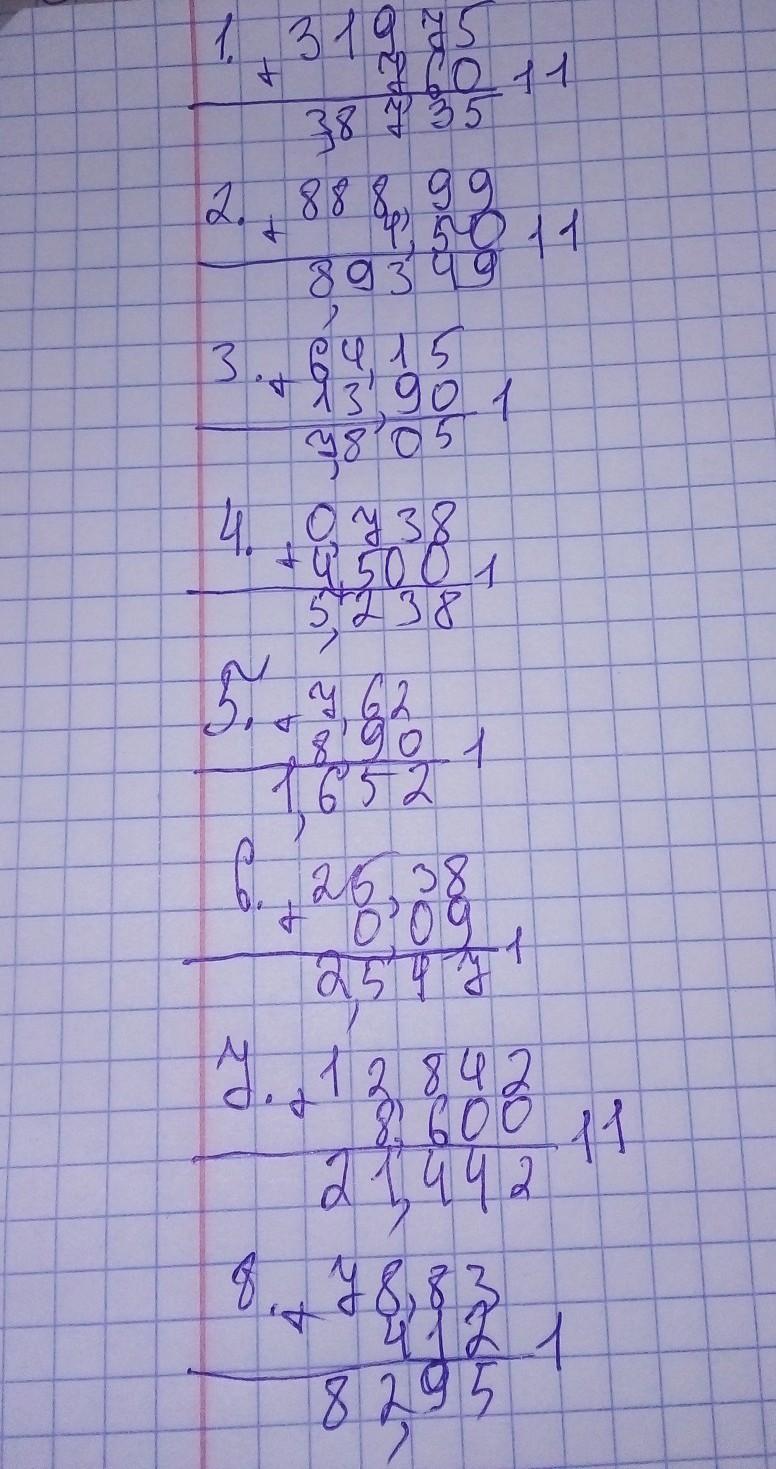 1. + 319,75
7,60 11
3,8735
2. + 888,99
4,50 11
8,9349
3. + 64,15
13,90 1
7,805
4. + 0,738
4,500 1
5,238
5. + 7,62
8,90 1
1,652
6. + 25,38
0,09 1
2,547
7. + 12,842
8,600 11
21,442
8. + 78,83
4,12 1
82,95